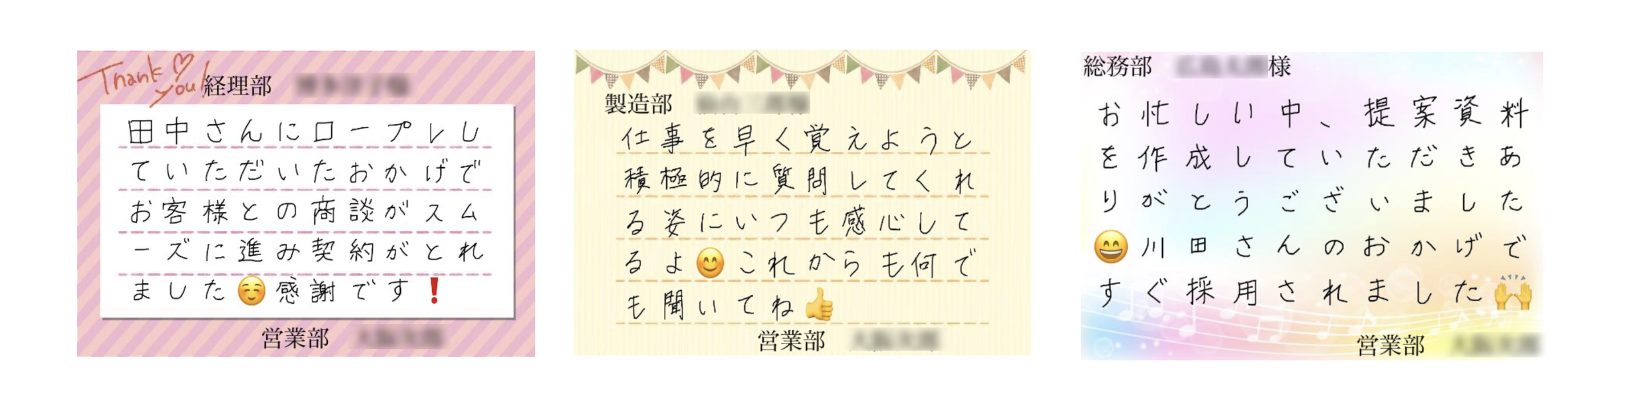 Thank you!
経理部
田中さんにロープレし
ていただいたおかげで
お客様との商談がスム
ーズに進み契約がとれ
ました☺️感謝です❗
営業部
製造部
仕事を早く覚えようと
積極的に質問してくれ
る姿にいつも感心して
るよ😊これからも何で
も聞いてね👍
営業部
総務部 様
お忙しい中、提案資料
を作成していただきあ
りがとうございました
😄川田さんのおかげで
すぐ採用されました🙌
営業部